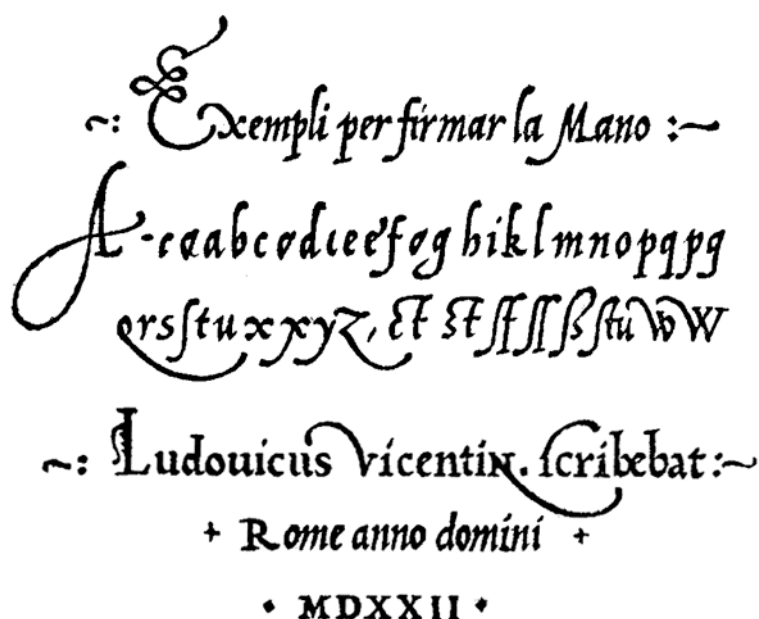 ~: Exempli per firmar la Mano :~
A-caabcodceefoghiklmnopqpg
orsſtuxxyz, & ſt ſf ſſ ß ſtu W W
~: Ludouicus Vicentin. ſcribebat :~
+ Rome anno domini +
• MDXXII •